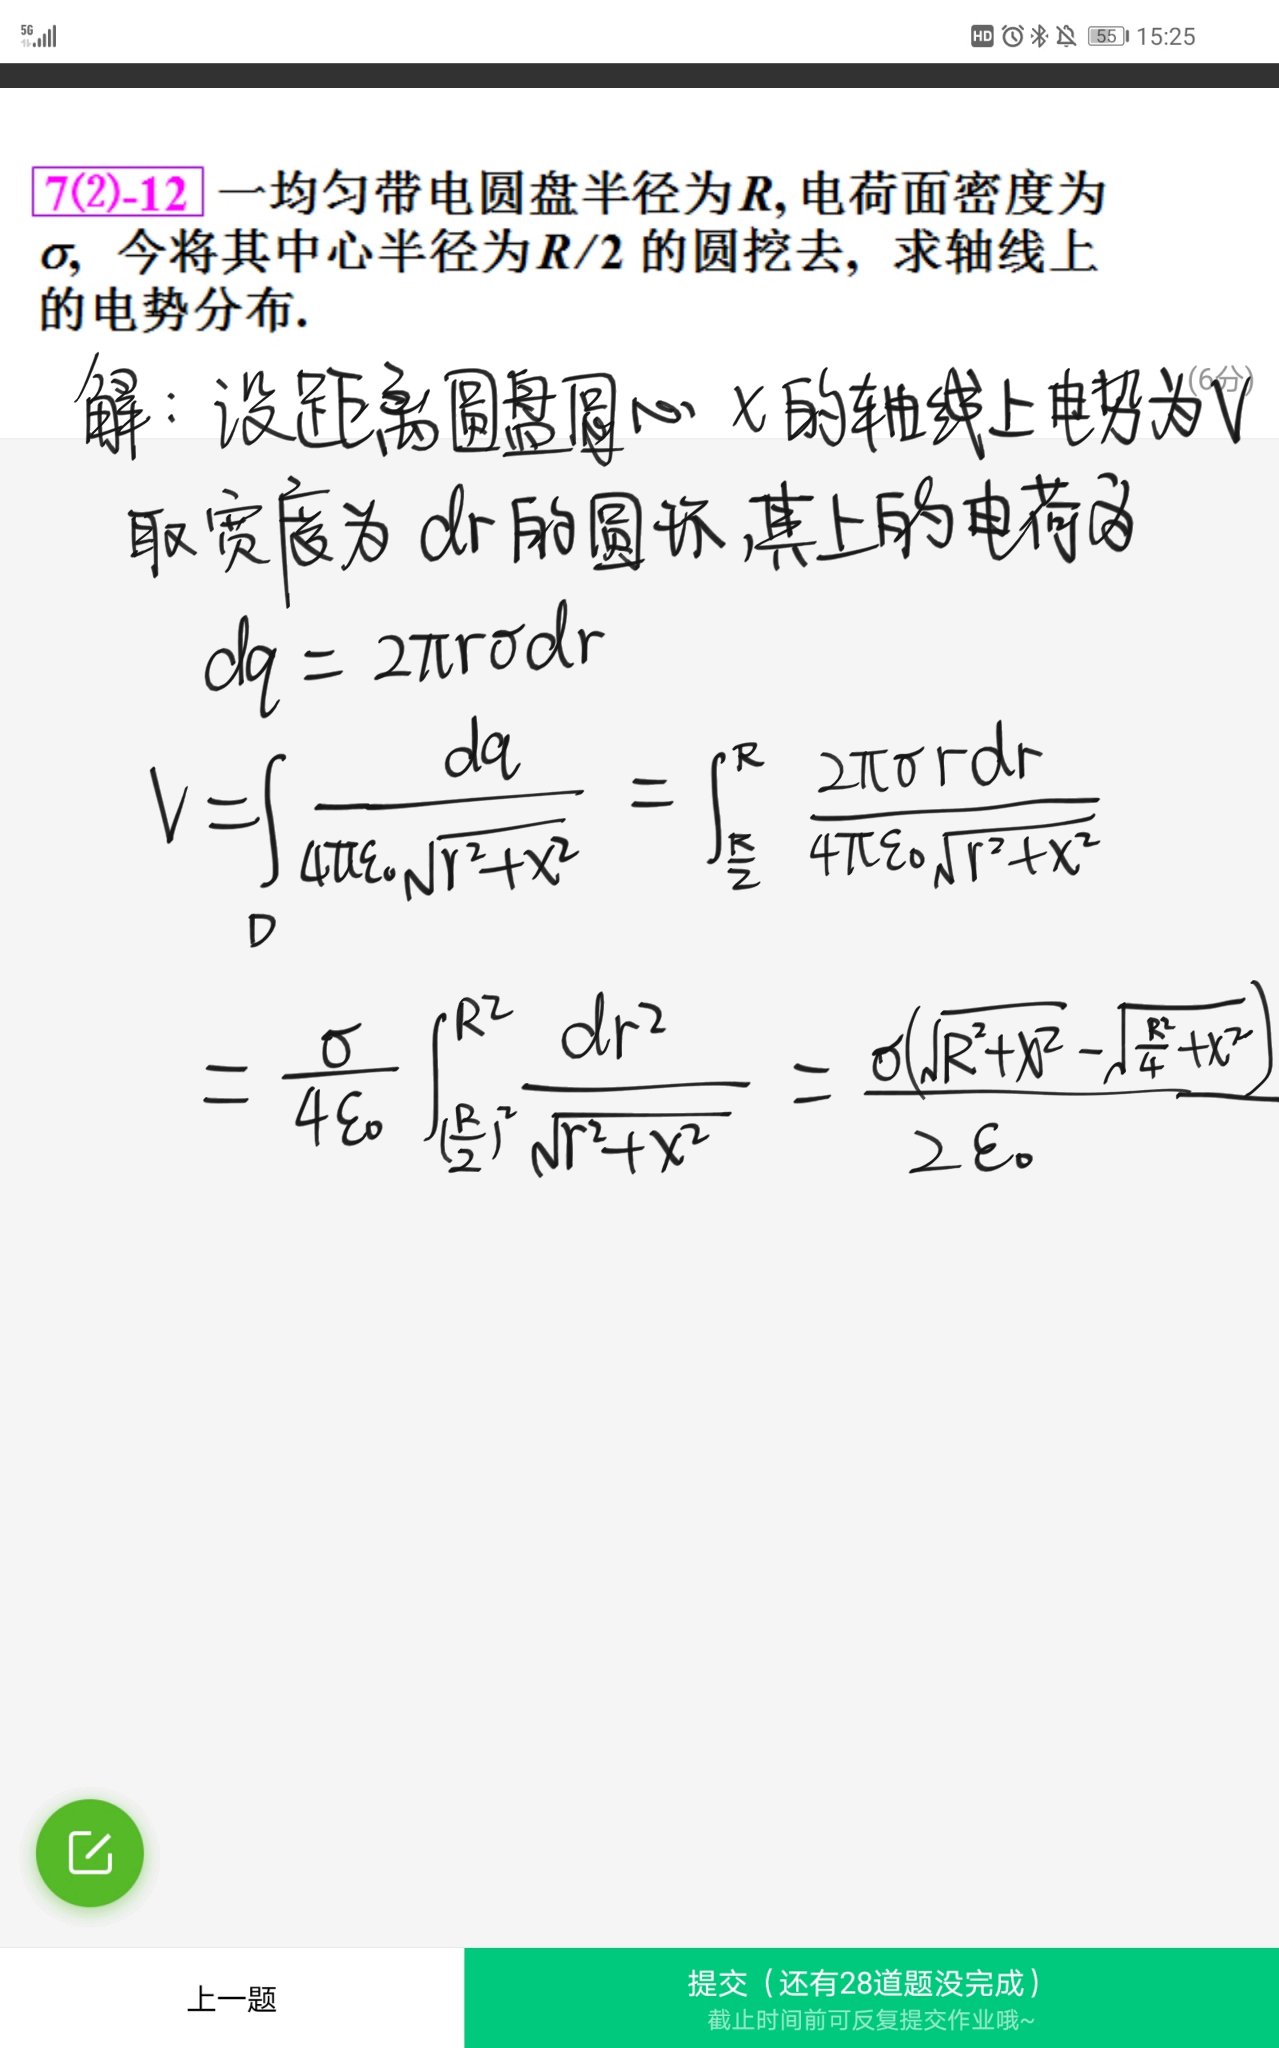 5G
HD 55 15:25
7(2)-12 一均匀带电圆盘半径为R, 电荷面密度为
σ, 今将其中心半径为R/2 的圆挖去, 求轴线上
的电势分布.
(6分)
解：设距离圆盘圆心 x 的轴线上电势为V
取宽度为 dr 的圆环,其上的电荷为
dq = 2πrσdr
V = ∫_D dq/(4πε₀√(r²+x²)) = ∫_{R/2}^{R} 2πσrdr/(4πε₀√(r²+x²))
= σ/(4ε₀) ∫_{(R/2)²}^{R²} dr²/√(r²+x²) = σ(√(R²+x²) - √(R²/4+x²))/(2ε₀)
上一题
提交（还有28道题没完成）
截止时间前可反复提交作业哦~